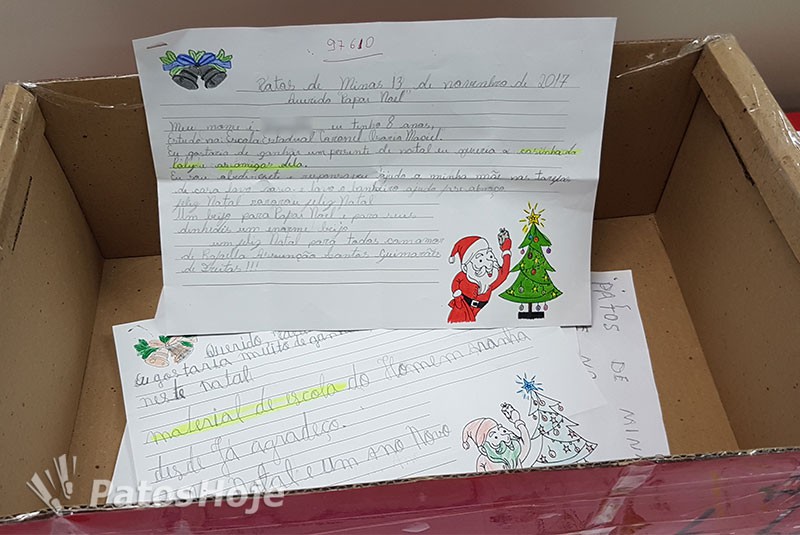 97610
Patos de Minas 13 de novembro de 2017
Querido Papai Noel
Meu nome é eu tenho 8 anos,
Estudo na Escola Estadual Coronel Osorio Maciel
Eu gostaria de ganhar um presente de natal eu queria a casinha da
e as amigas dela.
Eu sou obediente e ajudo a minha mãe nas
de casa lavo e lavo o banheiro ajudo
feliz Natal feliz Natal
Um beijo para Papai Noel e para seus
um enorme beijo
um feliz Natal para todos com amor
de Assunção Santos Guimarães
de Freitas !!!
Querido
Eu gostaria muito de ganhar
neste natal
material de escola do Homem aranha
desde Já agradeço.
Natal e um ano Novo
PATOS DE MIN
PatosHoje